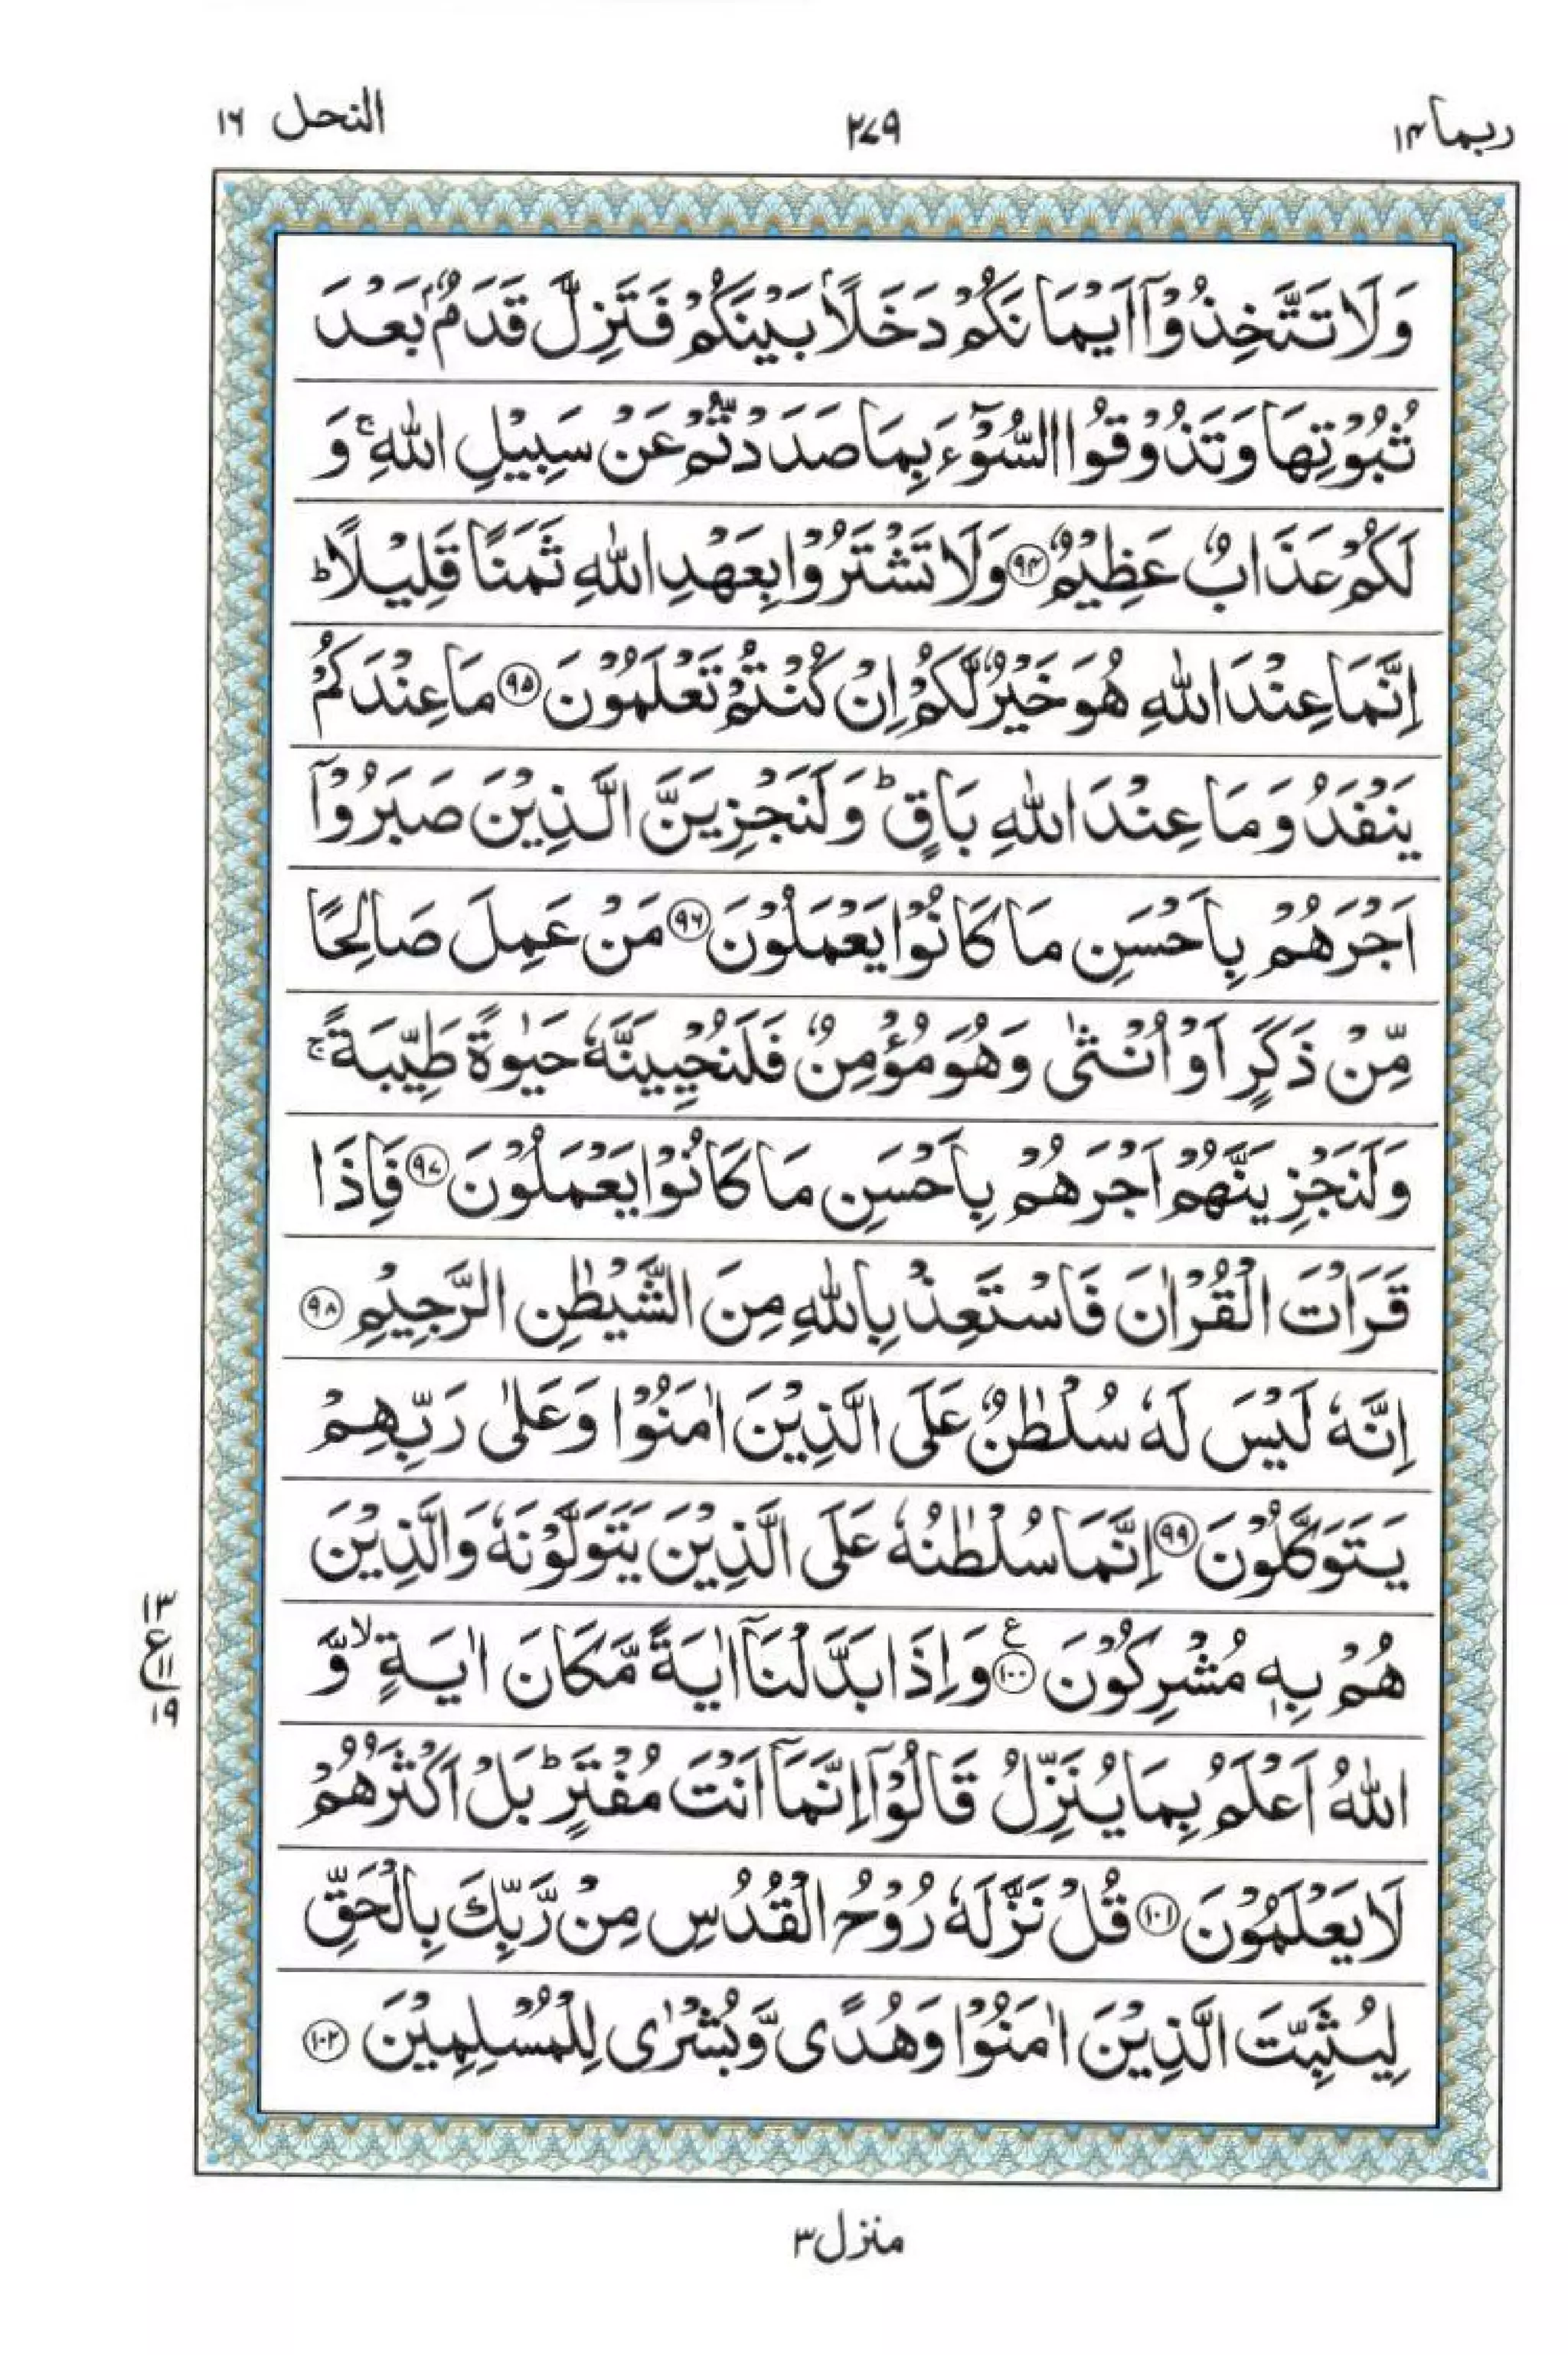 ربما ١٤
٢٧٩
النحل ١٦
وَلَا تَتَّخِذُوْۤا اَیْمَانَكُمْ دَخَلًۢا بَیْنَكُمْ فَتَزِلَّ قَدَمٌۢ بَعْدَ
ثُبُوْتِهَا وَتَذُوْقُوا السُّوْٓءَ بِمَا صَدَدْتُّمْ عَنْ سَبِیْلِ اللّٰهِ ۚ وَ
لَكُمْ عَذَابٌ عَظِیْمٌ ﴿۹۴﴾ وَلَا تَشْتَرُوْا بِعَهْدِ اللّٰهِ ثَمَنًا قَلِیْلًا ؕ
اِنَّمَا عِنْدَ اللّٰهِ هُوَ خَیْرٌ لَّكُمْ اِنْ كُنْتُمْ تَعْلَمُوْنَ ﴿۹۵﴾ مَا عِنْدَكُمْ
یَنْفَدُ وَمَا عِنْدَ اللّٰهِ بَاقٍ ؕ وَلَنَجْزِیَنَّ الَّذِیْنَ صَبَرُوْۤا
اَجْرَهُمْ بِاَحْسَنِ مَا كَانُوْا یَعْمَلُوْنَ ﴿۹۶﴾ مَنْ عَمِلَ صَالِحًا
مِّنْ ذَكَرٍ اَوْ اُنْثٰی وَهُوَ مُؤْمِنٌ فَلَنُحْیِیَنَّهٗ حَیٰوةً طَیِّبَةً ۚ
وَلَنَجْزِیَنَّهُمْ اَجْرَهُمْ بِاَحْسَنِ مَا كَانُوْا یَعْمَلُوْنَ ﴿۹۷﴾ فَاِذَا
قَرَاْتَ الْقُرْاٰنَ فَاسْتَعِذْ بِاللّٰهِ مِنَ الشَّیْطٰنِ الرَّجِیْمِ ﴿۹۸﴾
اِنَّهٗ لَیْسَ لَهٗ سُلْطٰنٌ عَلَی الَّذِیْنَ اٰمَنُوْا وَعَلٰی رَبِّهِمْ
یَتَوَكَّلُوْنَ ﴿۹۹﴾ اِنَّمَا سُلْطٰنُهٗ عَلَی الَّذِیْنَ یَتَوَلَّوْنَهٗ وَالَّذِیْنَ
هُمْ بِهٖ مُشْرِكُوْنَ ﴿۱۰۰﴾ ع وَاِذَا بَدَّلْنَاۤ اٰیَةً مَّكَانَ اٰیَةٍ ۙ وَّ
اللّٰهُ اَعْلَمُ بِمَا یُنَزِّلُ قَالُوْۤا اِنَّمَاۤ اَنْتَ مُفْتَرٍ ؕ بَلْ اَكْثَرُهُمْ
لَا یَعْلَمُوْنَ ﴿۱۰۱﴾ قُلْ نَزَّلَهٗ رُوْحُ الْقُدُسِ مِنْ رَّبِّكَ بِالْحَقِّ
لِیُثَبِّتَ الَّذِیْنَ اٰمَنُوْا وَهُدًی وَّبُشْرٰی لِلْمُسْلِمِیْنَ ﴿۱۰۲﴾
١٣
ع ١١
١٩
منزل ٣